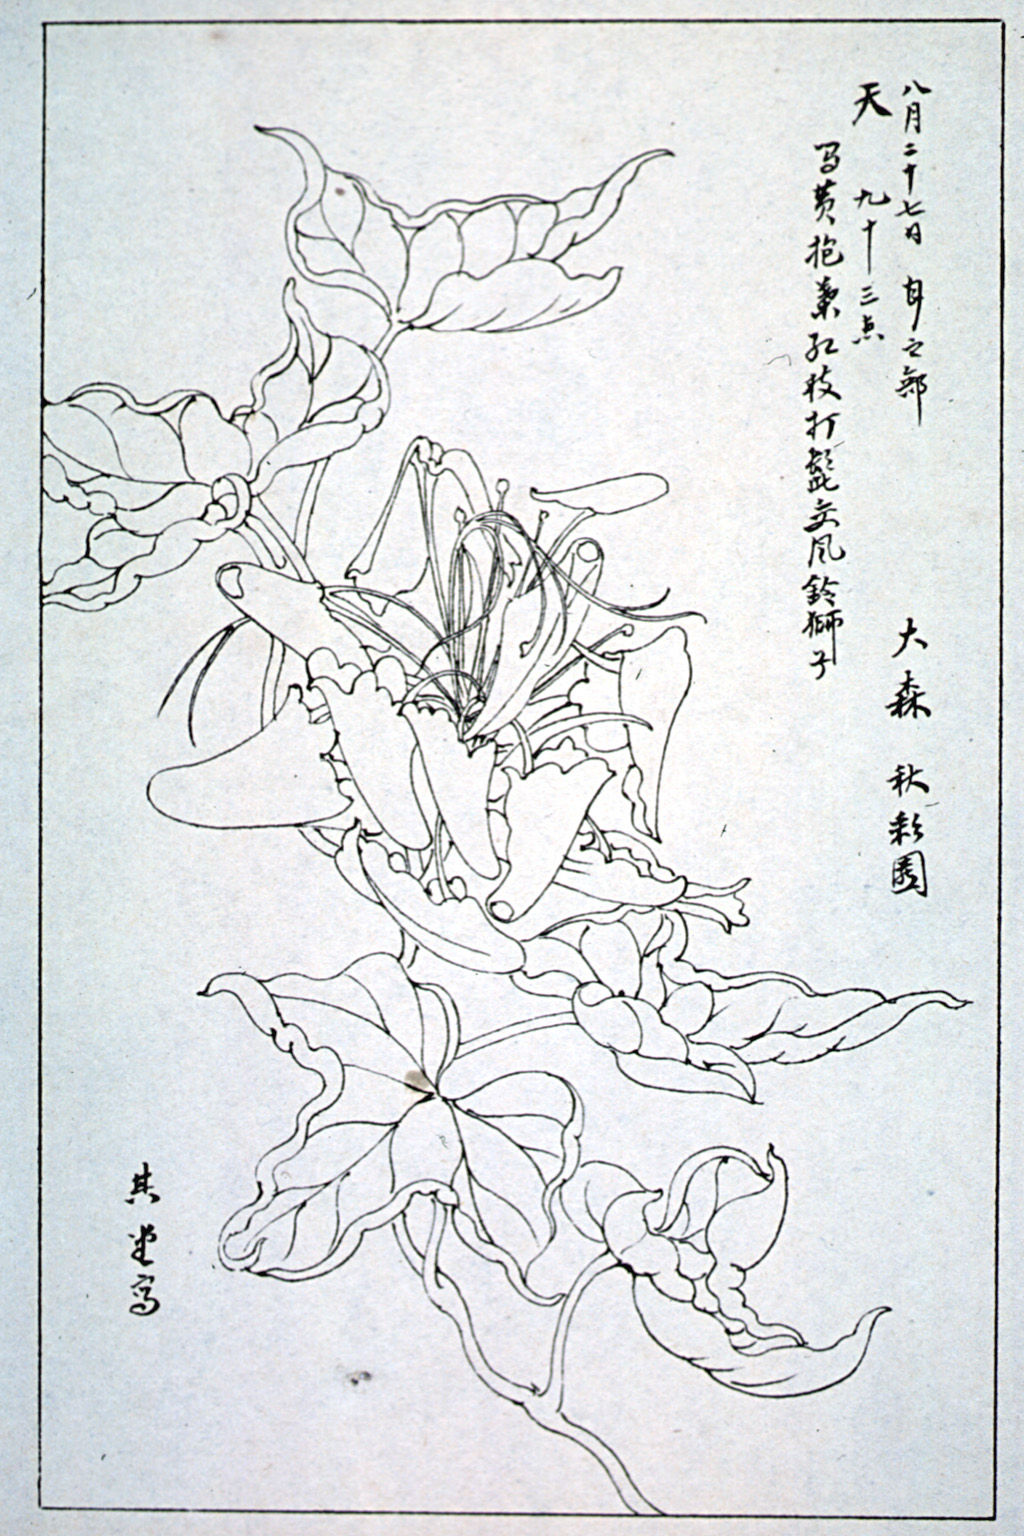 八月二十七日　自之部
天　九十三点
写黄抱葉紅枝打髭交風鈴獅子
大森　秋彩園
其堂寫